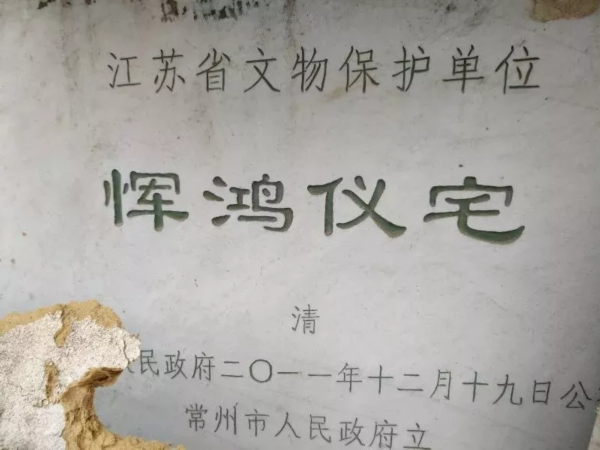 江苏省文物保护单位
恽鸿仪宅
清
民政府二〇一一年十二月十九日公
常州市人民政府立